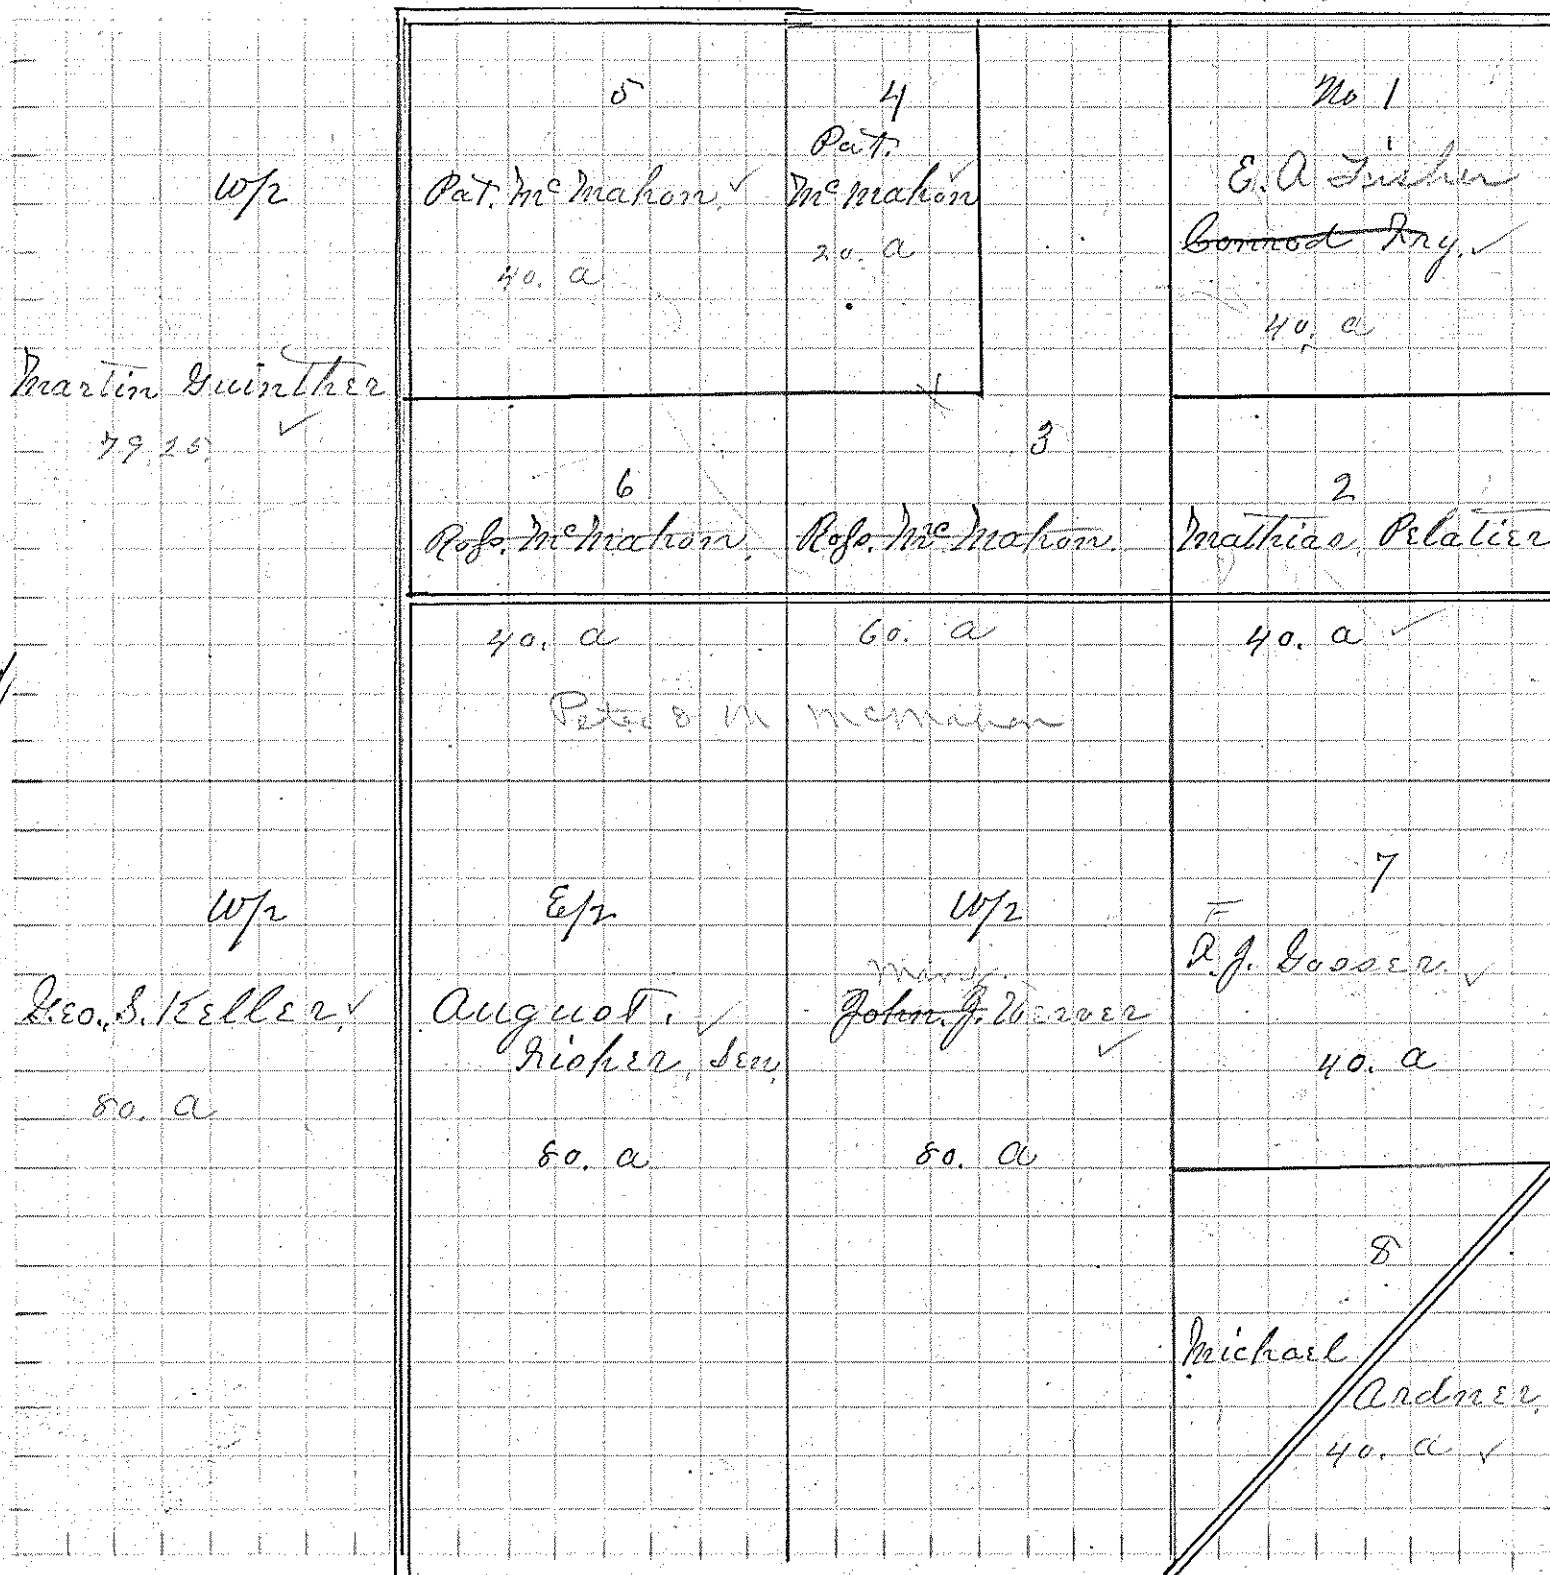 W/2
Martin Guinther
79.25
5
Pat. McMahon.
40. a
4
Pat.
McMahon
20. a
No 1
E. A Fisher
Conrod Fry.
40. a
6
Ross. McMahon.
40. a
3
Ross. McMahon.
60. a
2
Mathias Pelatier
40. a
Peter & M McMahon
W/2
Geo. S. Keller
80. a
E/2
August.
Fisher, Sen.
80. a
W/2
John. J. Werner
80. a
7
F
J. Gosser.
40. a
8
Michael
Ardner.
40. a